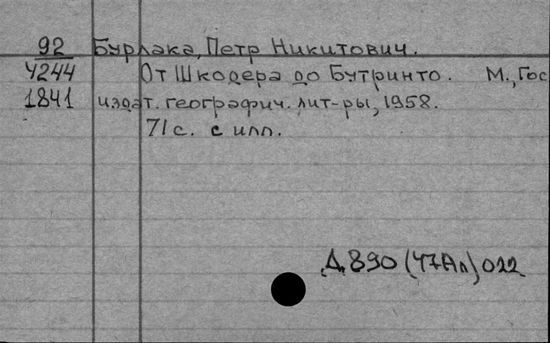 92 Бурлака, Петр Никитович.
4244 От Шкодера до Бутринто. М., Гос
1841 издат. географич. лит-ры, 1958.
71 с. с илл.
Д890(47Ал)022